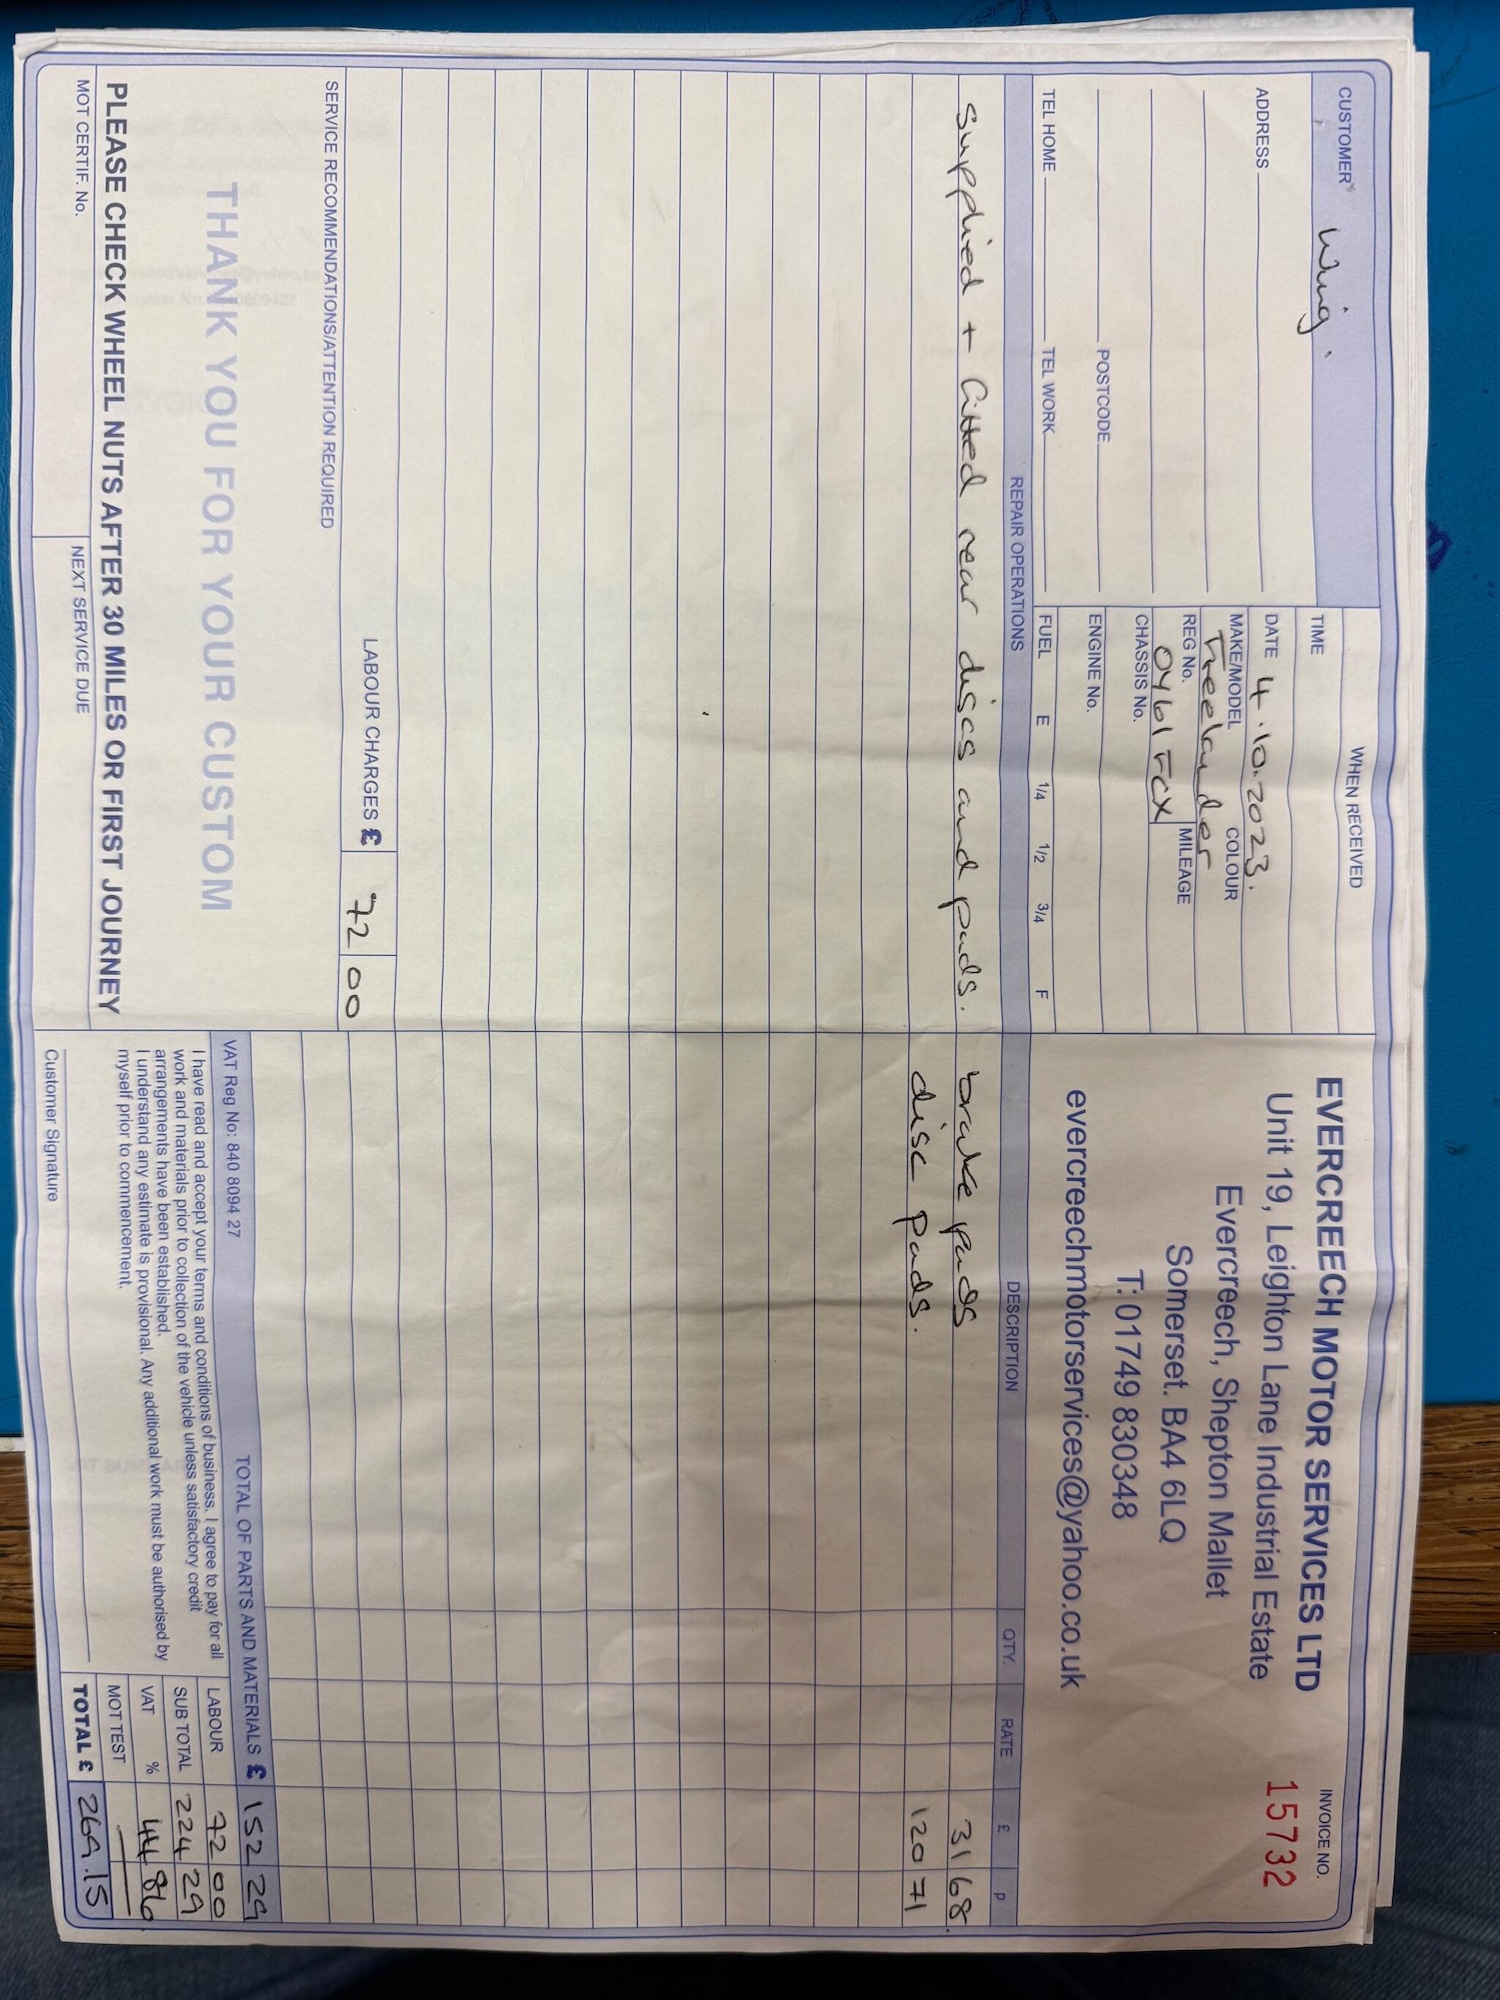 CUSTOMER Wing.
ADDRESS
POSTCODE
TEL HOME TEL WORK
WHEN RECEIVED
TIME
DATE 4.10.2023.
MAKE/MODEL COLOUR
Freelander
REG No. MILEAGE
OY61 FCX
CHASSIS No.
ENGINE No.
FUEL E 1/4 1/2 3/4 F
EVERCREECH MOTOR SERVICES LTD
Unit 19, Leighton Lane Industrial Estate
Evercreech, Shepton Mallet
Somerset. BA4 6LQ
T: 01749 830348
evercreechmotorservices@yahoo.co.uk
INVOICE NO.
15732
REPAIR OPERATIONS
supplied + fitted rear discs and pads.
LABOUR CHARGES £ 72 00
SERVICE RECOMMENDATIONS/ATTENTION REQUIRED
THANK YOU FOR YOUR CUSTOM
PLEASE CHECK WHEEL NUTS AFTER 30 MILES OR FIRST JOURNEY
MOT CERTIF. No. NEXT SERVICE DUE
DESCRIPTION QTY. RATE £ p
brake pads 31 68.
disc pads. 120 71
TOTAL OF PARTS AND MATERIALS £ 152 29
VAT Reg No: 840 8094 27
I have read and accept your terms and conditions of business. I agree to pay for all
work and materials prior to collection of the vehicle unless satisfactory credit
arrangements have been established.
I understand any estimate is provisional. Any additional work must be authorised by
myself prior to commencement.
Customer Signature
LABOUR 72 00
SUB TOTAL 224 29
VAT % 44 86
MOT TEST —
TOTAL £ 269.15